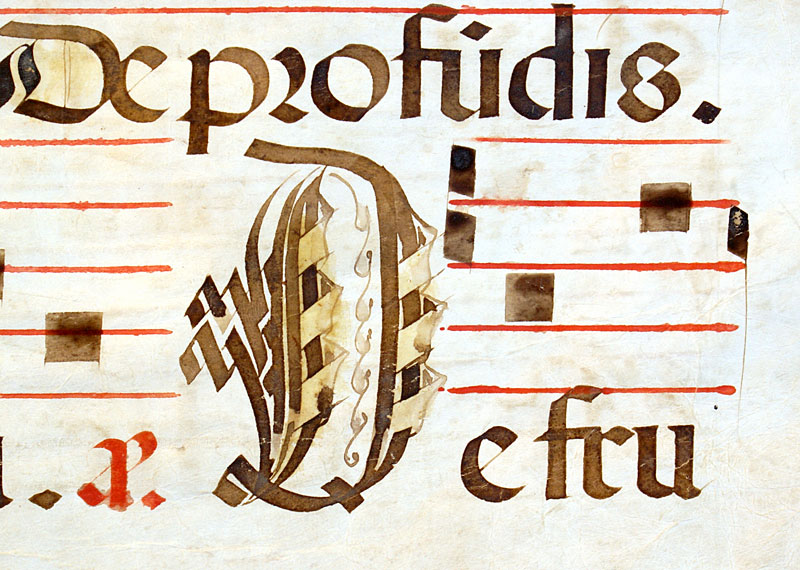 De profūdis.
. ꝶ. De fru